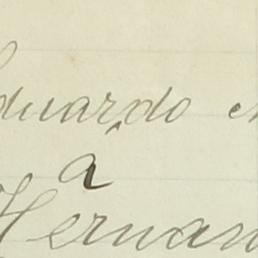 Eduardo
á
Hernan